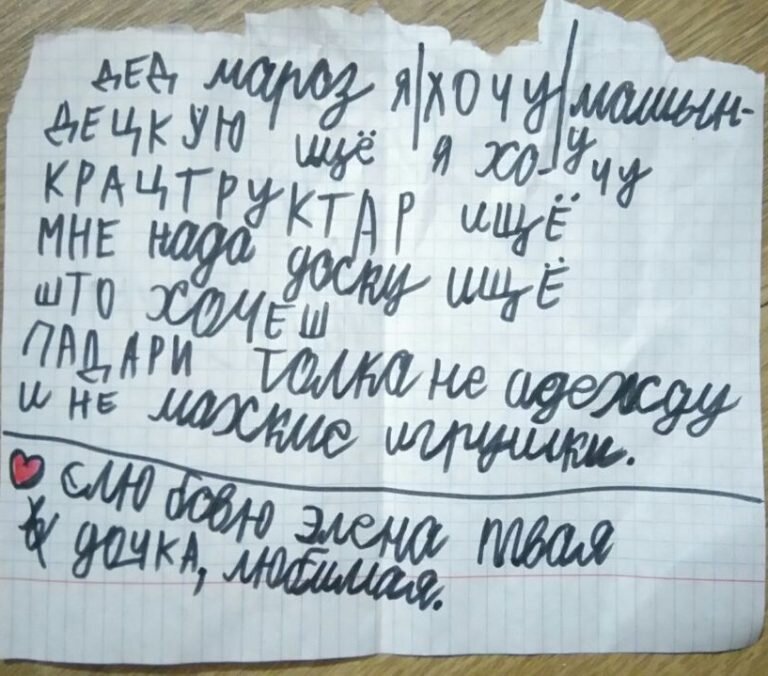 ДЕД мароз я хочу машын-
ДЕЦКУЮ ищё я хо-у чу
КРАЦТРУКТАР ИЩЁ
МНЕ нада доску ИЩЁ
ШТО ХОЧЕШ
ПАДАРИ толка не адежду
и НЕ махкие игрушки.
слюбовю элена твая
дочка, любимая.